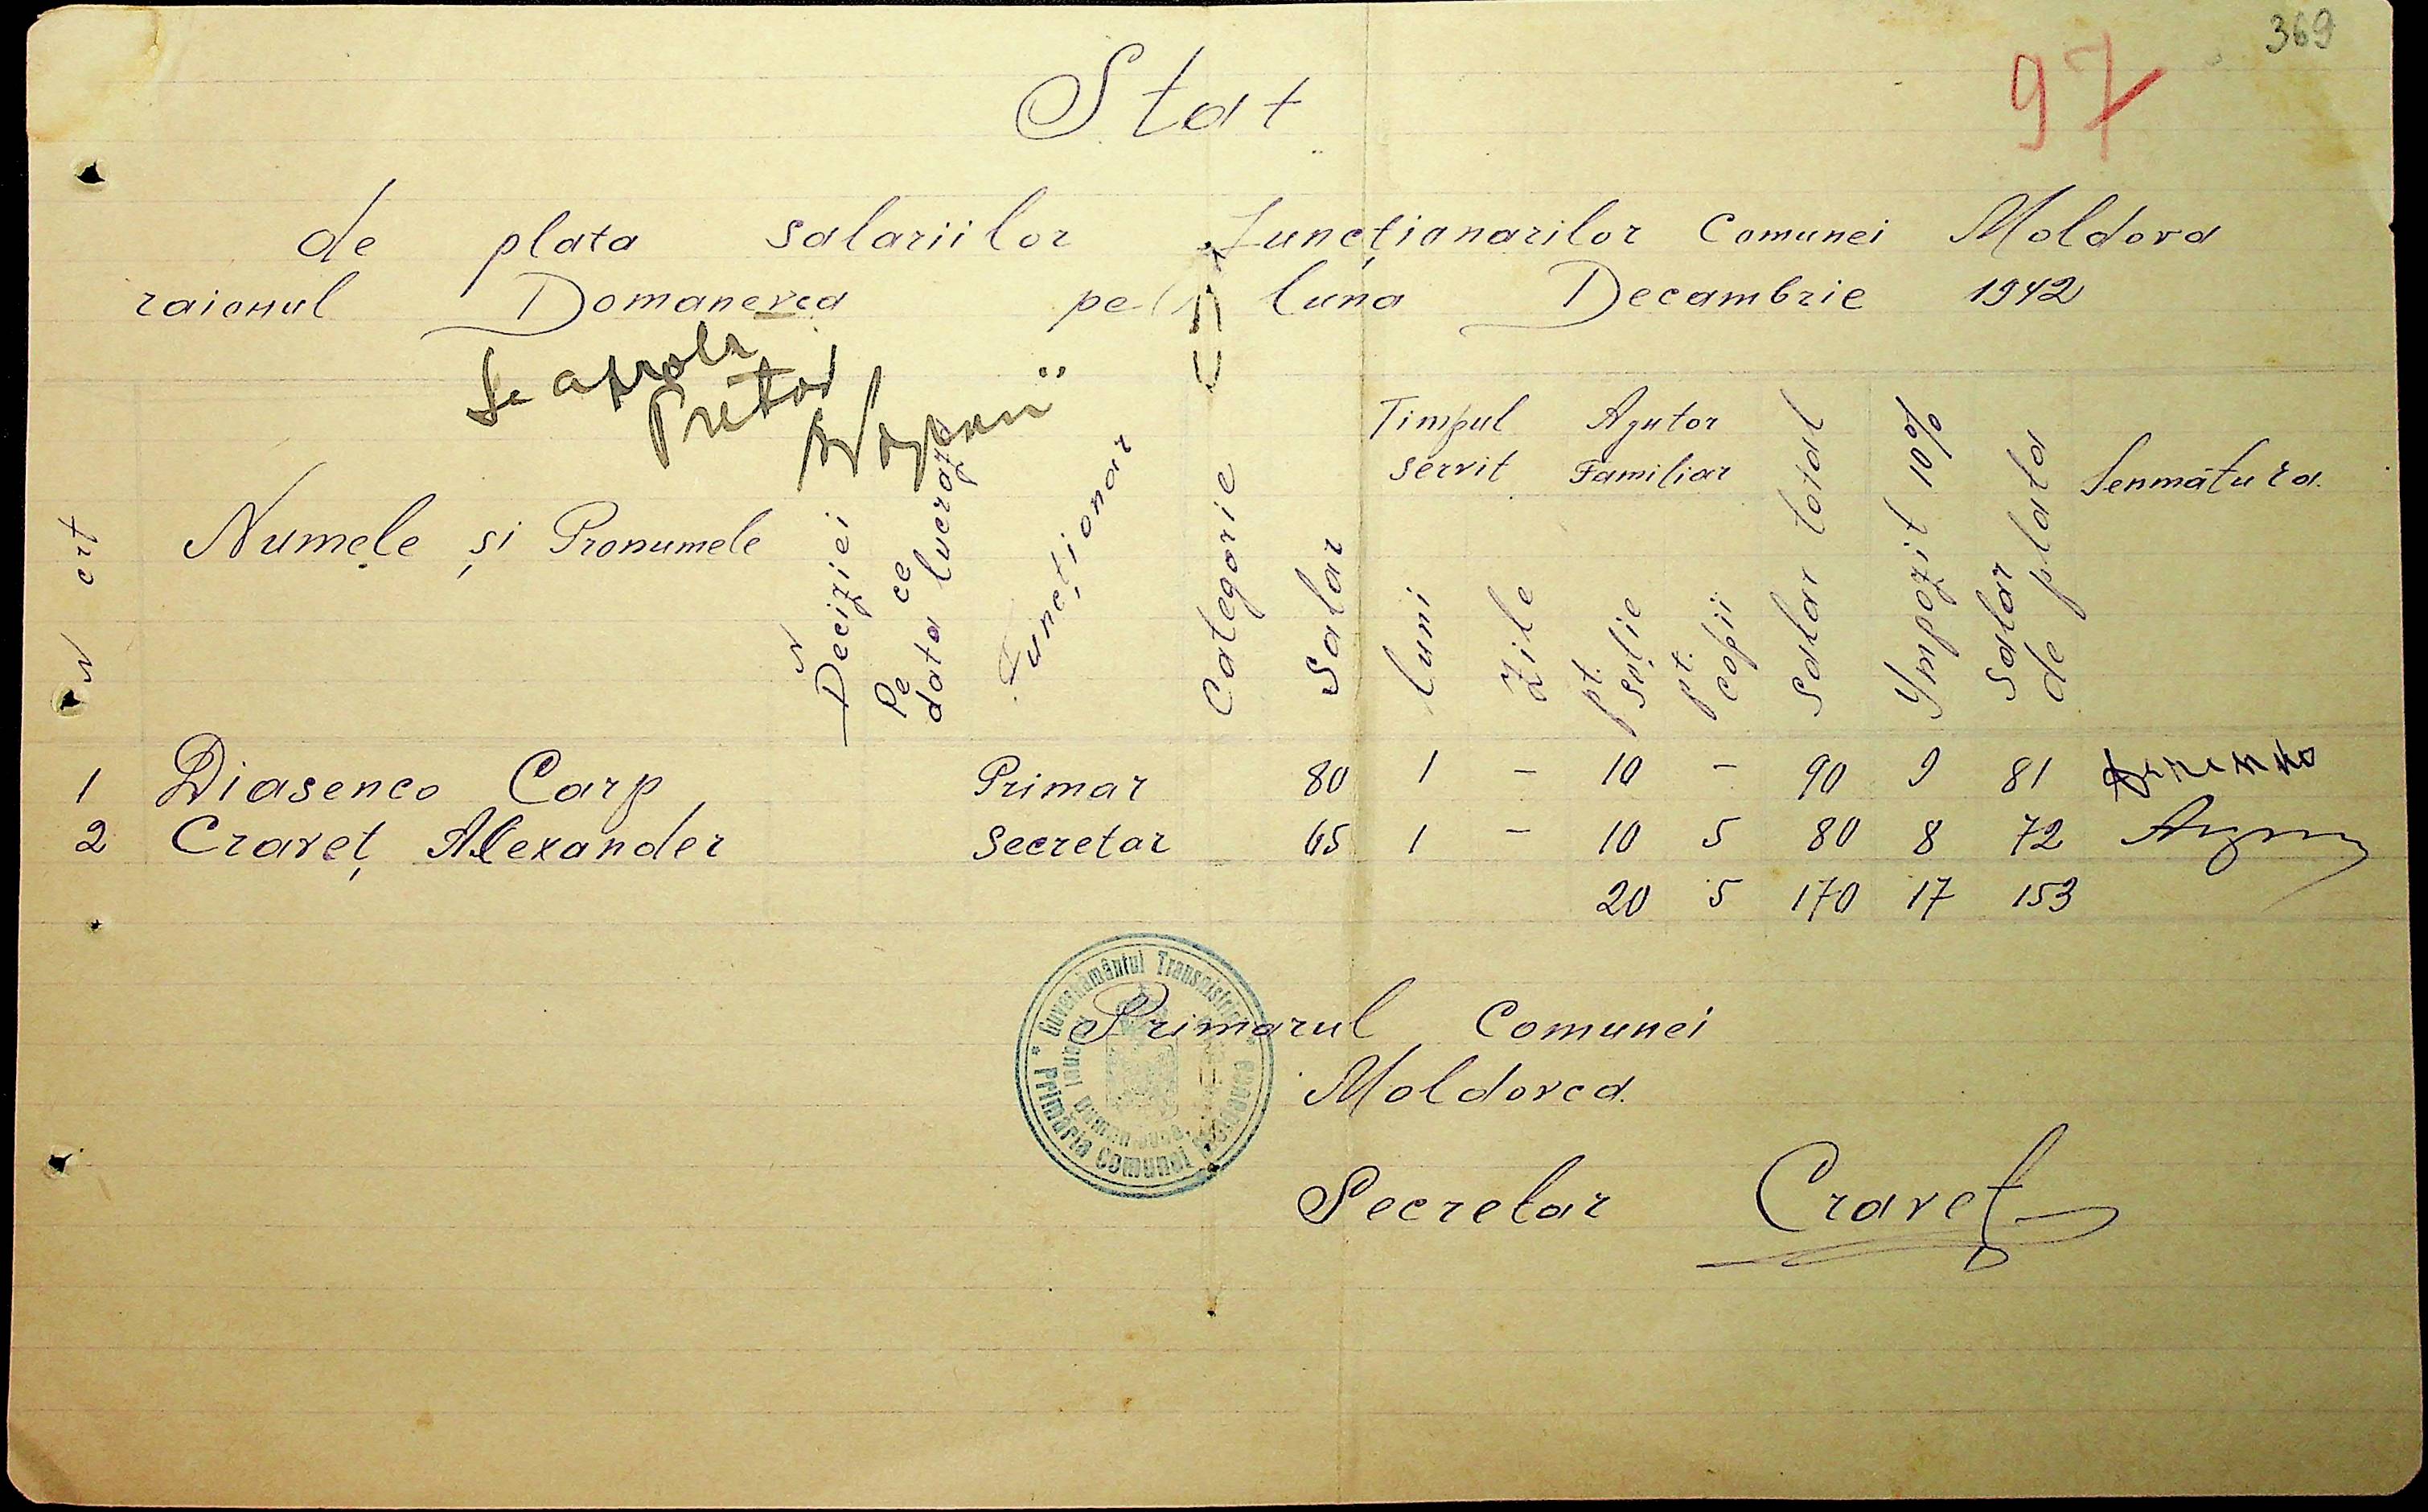 369
97
Stat
de plata salariilor funcționarilor Comunei Moldova
raionul Domanevca pe luna Decambrie 1942
Se aprobă
Pretor
N ert
Numele și Pronumele
N Deciziei
Pe ce data lucrază
Funcționar
Categorie
Salar
Timpul servit
luni
Zile
Agutor Familiar
pt. soție
pt. copii
Salar total
Ympozit 10%
Salar de plata
Senmătura
1 Diasenco Carp Primar 80 1 – 10 – 90 9 81
2 Craveț Alexander Secretar 65 1 – 10 5 80 8 72
20 5 170 17 153
* Guvernământul Transnistriei *
Primăria Comunei
Primarul Comunei
Moldovca
Secretar Craveț